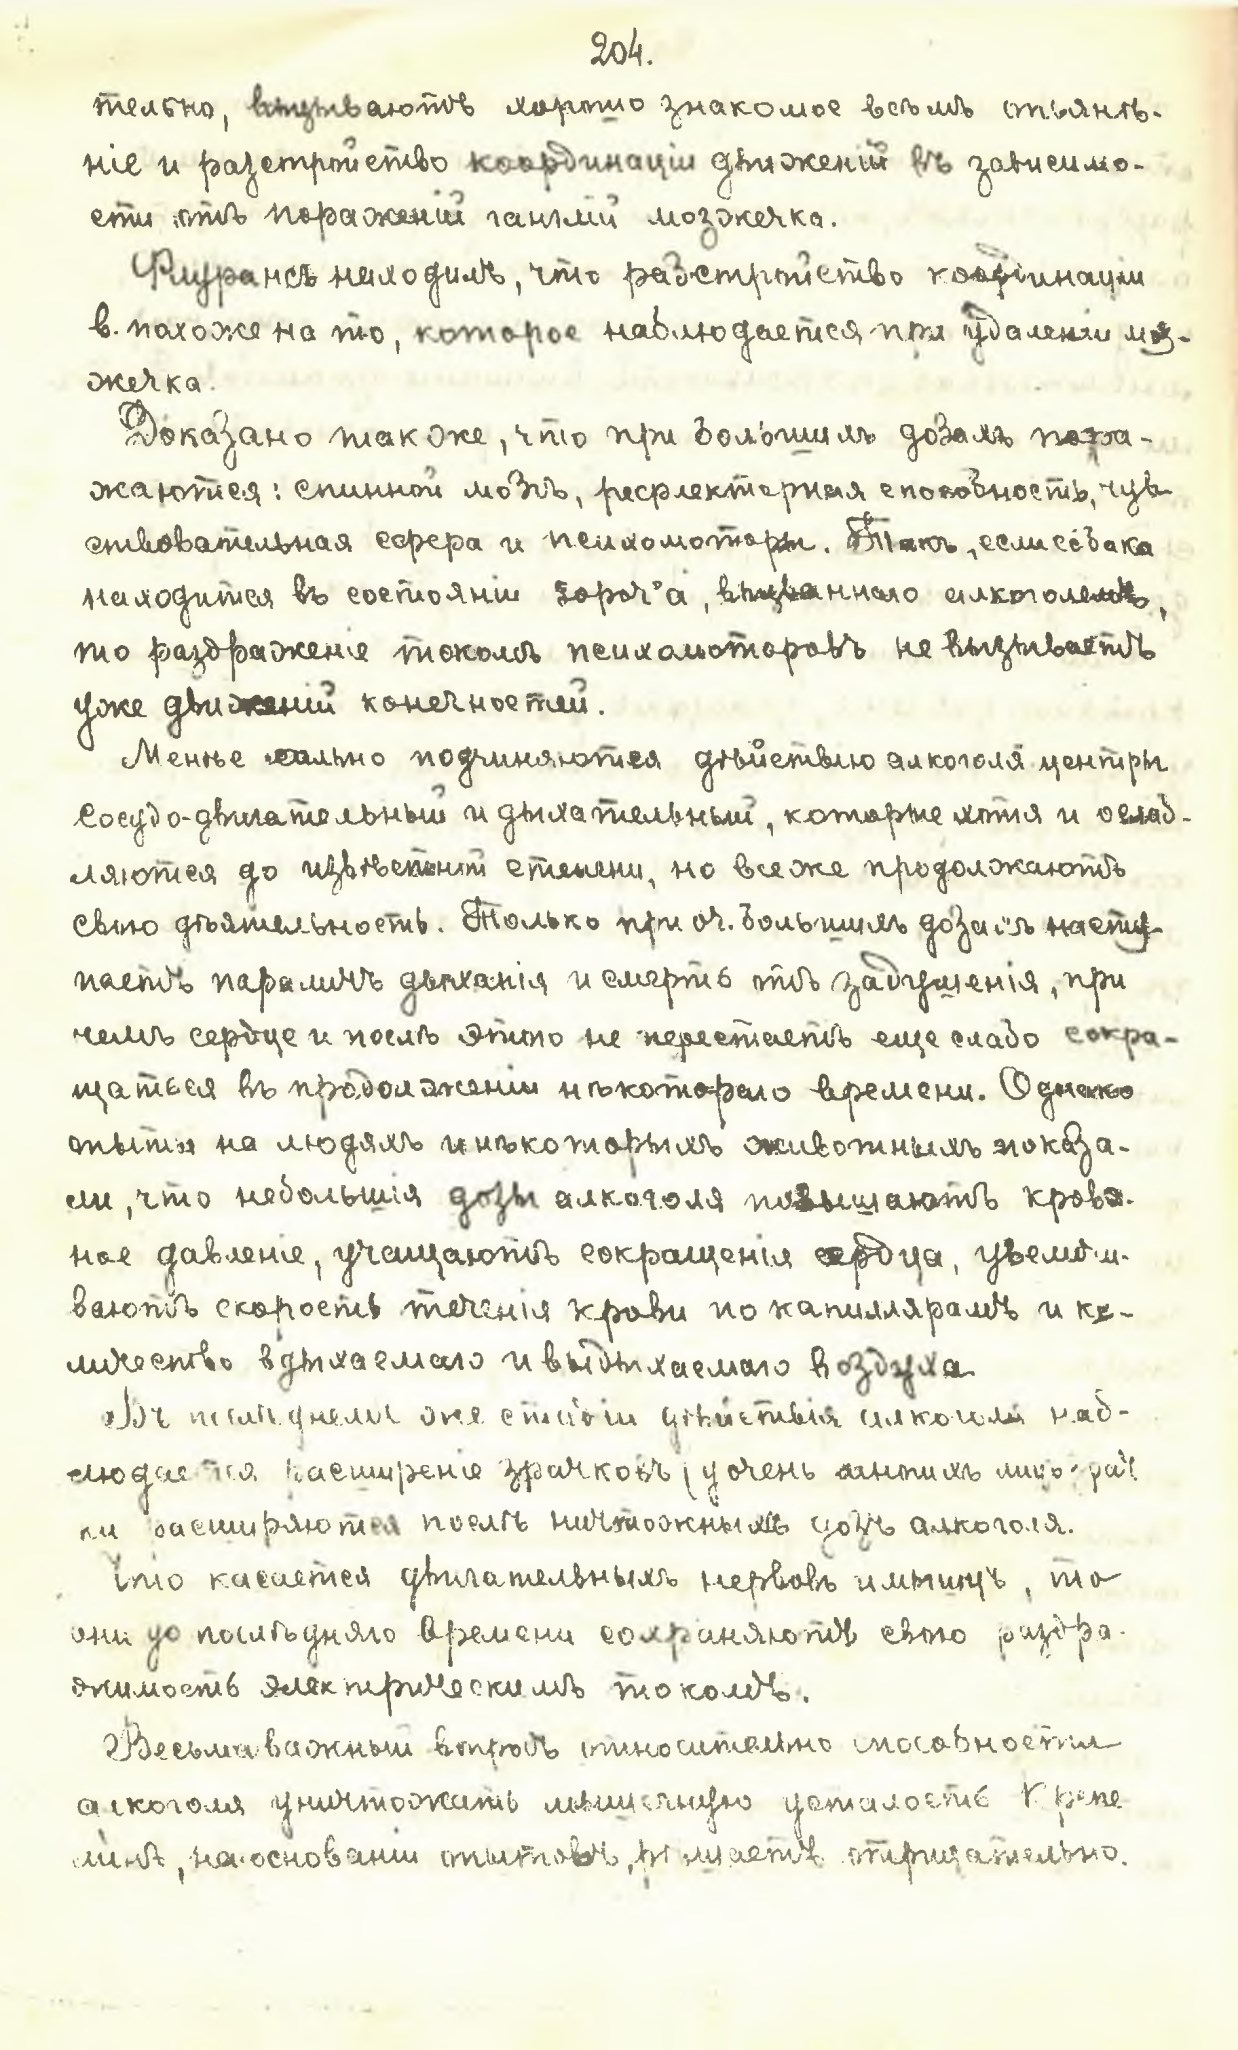 204.
тельно, вызываютъ хорошо знакомое всѣмъ опьянѣ-
ніе и разстройство координаціи движеній въ зависимо-
сти отъ пораженій гангліи мозжечка.
Флурансъ находилъ, что разстройство координаціи
в. похоже на то, которое наблюдается при удаленіи моз-
жечка.
Доказано также, что при большихъ дозахъ пора-
жаются: спинной мозгъ, рефлекторная способность, чув
ствовательная сфера и психомоторы. Такъ, если собака
находится въ состояніи вызваннаго алкоголемъ,
то раздраженіе токомъ психомоторовъ не вызываетъ
уже движеній конечностей.
Менѣе сильно подчиняются дѣйствію алкоголя центры
сосудо-двигательный и дыхательный, которые хотя и ослаб-
ляются до извѣстной степени, но все же продолжаютъ
свою дѣятельность. Только при оч. большихъ дозахъ насту-
паетъ параличъ дыханія и смерть отъ задушенія, при
чемъ сердце и послѣ этого не перестаетъ еще слабо сокра-
щаться въ продолженіи нѣкотораго времени. Однако
опыты на людяхъ и нѣкоторыхъ животныхъ показа-
ли, что небольшія дозы алкоголя повышаютъ кровя-
ное давленіе, учащаютъ сокращенія сердца, увеличи-
ваютъ скорость теченія крови по капиллярамъ и ко-
личество вдыхаемаго и выдыхаемаго воздуха
Въ послѣднемъ же стадіи дѣйствія алкоголя наб-
людается расширеніе зрачковъ (у очень многихъ лицъ зрач
ки расширяются послѣ ничтожныхъ дозъ алкоголя.
Что касается двигательныхъ нервовъ и мышцъ, то
они до послѣдняго времени сохраняютъ свою раздра-
жимость электрическимъ токомъ.
Весьма важный вопросъ относительно способности
алкоголя уничтожать мышечную усталость Крепе
линъ, на основаніи опытовъ, рѣшаетъ отрицательно.